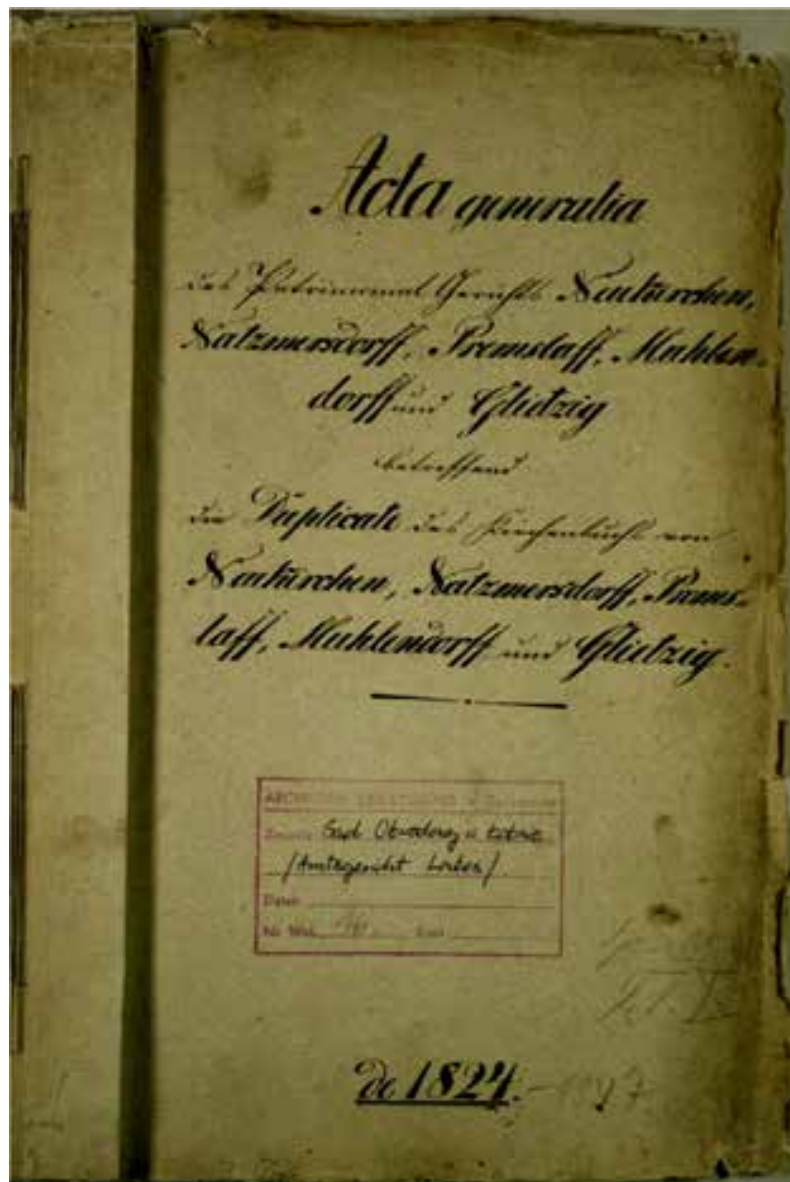 Acta generalia
des Patrimonial Gerichts Neukirchen,
Natzmersdorff, Premslaff, Muhlen-
dorff und Glietzig
betreffend
die Duplicate des Kirchenbuchs von
Neukirchen, Natzmersdorff, Prems-
laff, Muhlendorff und Glietzig.
ARCHIWUM
Sąd Obwodowy w Łobzie
/Amtsgericht Labes/.
de 1824. - 1847